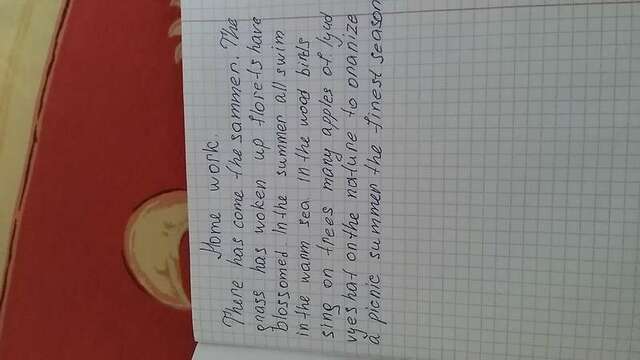 Home work.
There has come the sammer. The
grass has woken up florets have
blossomed. In the summer all swim
in the warm sea. In the wood birds
sing on trees many apples of. lyud
vyeshat on the nature to oranize
a picnic summer the finest season